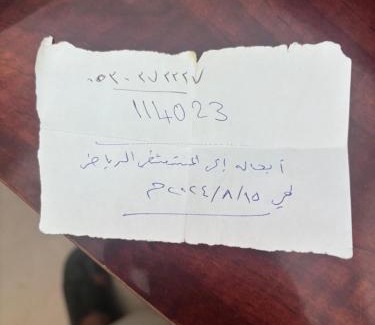 ٠٥٣٠٢٧٢٢٢٧
114023
أبحاله إلى المستشفى الرياض
في ٢٠٢٤/٨/١٥م